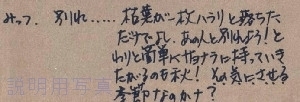 みっつ. 別れ……枯葉が一枚ハラリと落ちた
だけでも、あの人と別れよう！と
わりと簡単にサヨナラに持っていき
たがるのも秋！気にさせる
季節なのかナ？
説明用写真